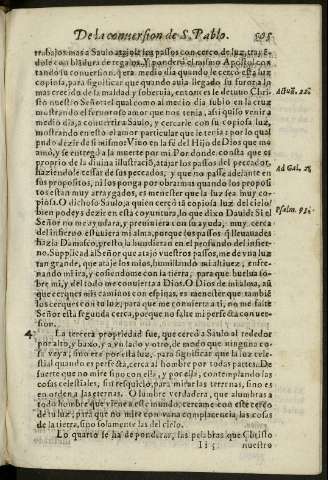 De la conuersion de S. Pablo. 505
trabajos: mas a Saulo atajole los passos con cerco de luz, traye-
dole con blãdura de regalos. Y pondera el mismo Apostol con
tando su conuersion, q̃ era medio dia quando le cercó esta luz
copiosa, para significar que quando auia llegado su furor a lo
mas crecido de la maldad y soberuia, entonces le detuuo Chri-
sto nuestro Señor: tal qual como al medio dia subio en la cruz
mostrando el feruoroso amor que nos tenia, assi quiso venir a
medio dia, a conuertir a Saulo, y cercarle con su copiosa luz,
mostrando en esto el amor particular que le tenia: por lo qual
pudo dezir de si mismo: Viuo en la fé del Hijo de Dios que me
amó, y se entregò a la muerte por mi. Por donde consta que es
proprio de la diuina illustració, atajar los passos del pecador,
haziendole cessar de sus pecados, y que no passe adelante en
sus propositos, ni los ponga por obra: mas quando los proposi
tos estan muy arraygados, es menester que la luz sea muy co-
piosa. O dichoso Saulo, a quien cercó tã copiosa luz del cielo!
bien podeys dezir en esta coyuntura, lo que dixo Dauid: Si el
Señor no me ayudara, y preuiniera con su ayuda, muy cerca
del infierno estuuiera mi alma, porque los passos q̃ lleuauades
hazia Damasco, presto la hundieran en el profundo del infier-
no. Supplicad al Señor que ataje vuestros passos, me dè vna luz
tan grande, que ataje los mios, humillando mi altiuez, enfre-
nando mi ira, y cosiendome con la tierra, para que buelua so-
bre mi, y del todo me conuierta a Dios. O Dios de mi alma, assi
que cerques mis caminos con espinas, es menester que tambié
los cerques con tu luz, para que me conuierta a ti, no me falte
Señor esta segunda cerca, porque no falte mi perfecta conuer-
sion.
4. La tercera propriedad fue, que cercò a Saulo al rededor
por alto, y baxo, a vn lado y otro, de modo que ninguna co-
sa veya, sino era por esta luz, para significar que la luz cele-
stial quando es perfecta, cerca al hombre por todas partes: De
suerte que no mire sino en ella, y por ella, contemplando las
cosas celestiales, sin resquicio, para mirar las terrenas, sino es
en orden a las eternas. O lumbre verdadera, que alumbras a
todo hombre que viene a este mundo, cercame con este cerco
de tu luz, para que no mire con vana complacencia, las cosas
de la tierra, sino solamente las del cielo.
Lo quarto se ha de ponderar, las palabras que Christo
nuestro
Act. 22.
Ad Gal. 2.
Psalm. 93.